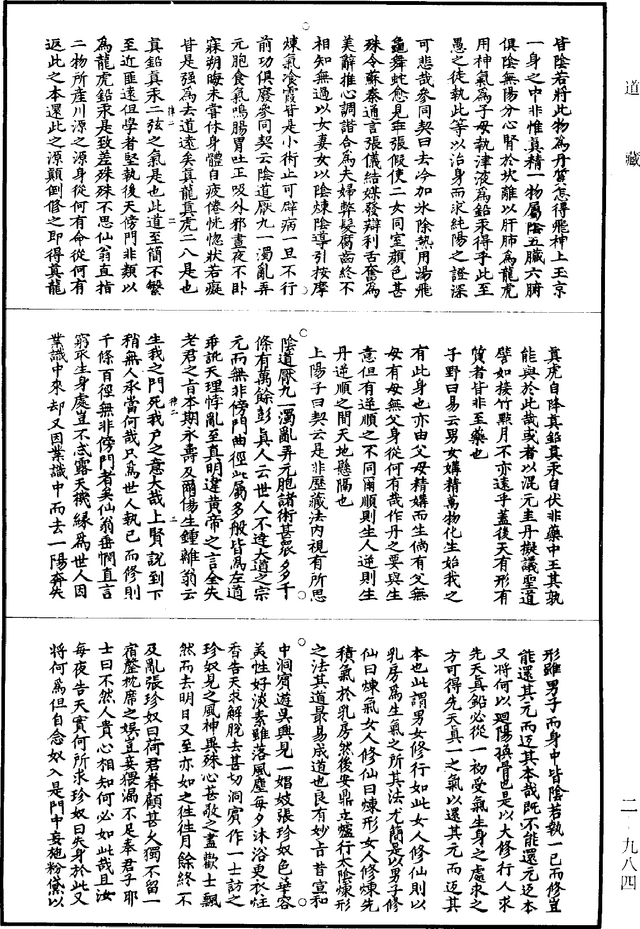 道藏
皆陰若將此物為丹質怎得飛神上玉京
一身之中非惟真精一物屬陰五臟六腑
俱陰無陽分心腎於坎離以肝肺為龍虎
用神氣為子母執津液為鉛汞得乎此至
愚之徒執此等以治身而求純陽之證深
可悲哉參同契曰去冷加冰除熱用湯飛
龜舞蛇愈見乖張假使二女同室顏色甚
姝令蘇秦通言張儀結媒發辯利舌奮為
美辭推心調諧合為夫婦弊髮腐齒終不
相知無過以女妻女以陰煉陰導引按摩
煉氣飡霞皆是小術止可辟病一旦不行
前功俱廢參同契云陰道厭九一濁亂弄
元胞食氣鳴腸胃吐正吸外邪晝夜不卧
寐朔晦未嘗休身體自疲倦恍惚狀若癡
皆是強為去道遠矣真龍真虎二八是也
真鉛真汞二弦之氣是也此道至簡不繁
至近匪遠但學者堅執後天傍門非類以
為龍虎鉛汞是致差殊殊不思仙翁直指
二物所產川源之源身從何有命從何有
返此之本還此之源顛倒修之即得真龍
真虎自降真鉛真汞自伏非藥中王其孰
能與於此哉或者以混元圭丹擬議聖道
譬如接竹點月不亦遠乎蓋後天有形有
質者皆非至藥也
子野曰易云男女媾精萬物化生始我之
有此身也亦由父母精媾而生倘有父無
母有母無父身從何有哉作丹之要與生
意但有逆順之不同爾順則生人逆則生
丹逆順之間天地懸隔也
上陽子曰契云是非歷藏法內視有所思
陰道厭九一濁亂弄元胞諸術甚眾多千
條有萬餘彭真人云世人不達大道之宗
元而無非傍門曲徑此屬多般皆為左道
乖訛天理悖亂至真明違黃帝之言全失
老君之旨本期永壽反爾傷生鍾離翁云
生我之門死我戶之意大哉上賢說到下
稍無人承當何哉只為世人執己而修則
千條百徑無非傍門者矣仙翁垂憫直言
窮取生身處豈不忒露天機緣為世人因
業識中來却又因業識中而去一陽奔失
形雖男子而身中皆陰若執一己而修豈
能還其元而返其本哉既不能還元返本
又將何以迴陽換骨也是以大修行人求
先天真鉛必從一初受氣生身之處求之
方可得先天真一之氣以還其元而返其
本也此謂男女修行如此女人修仙則以
乳房為生氣之所其法尤簡是以男子修
仙曰煉氣女人修仙曰煉形女人修煉先
積氣於乳房然後安鼎立爐行太陰煉形
之法其道最易成道也良有妙旨昔宣和
中洞賓遊吳興見一娼妓張珍奴色華容
美性好淡素雖落風塵每夕沐浴更衣炷
香告天求解脫去甚切洞賓作一士訪之
珍奴見之風神異殊心甚敬之盡歡士飄
然而去明日又至亦如之往往月餘終不
及亂張珍奴曰荷君眷顧甚久獨不留一
宿罄枕席之娛豈妾猥漏不足奉君子耶
士曰不然人貴心相知何必如此哉且汝
每夜告天實何所求珍奴曰失身於此又
將何為但自念奴入是門中妄施粉黛以
二—九八四